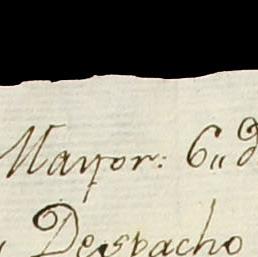 Mayor: 6,, d
Despacho